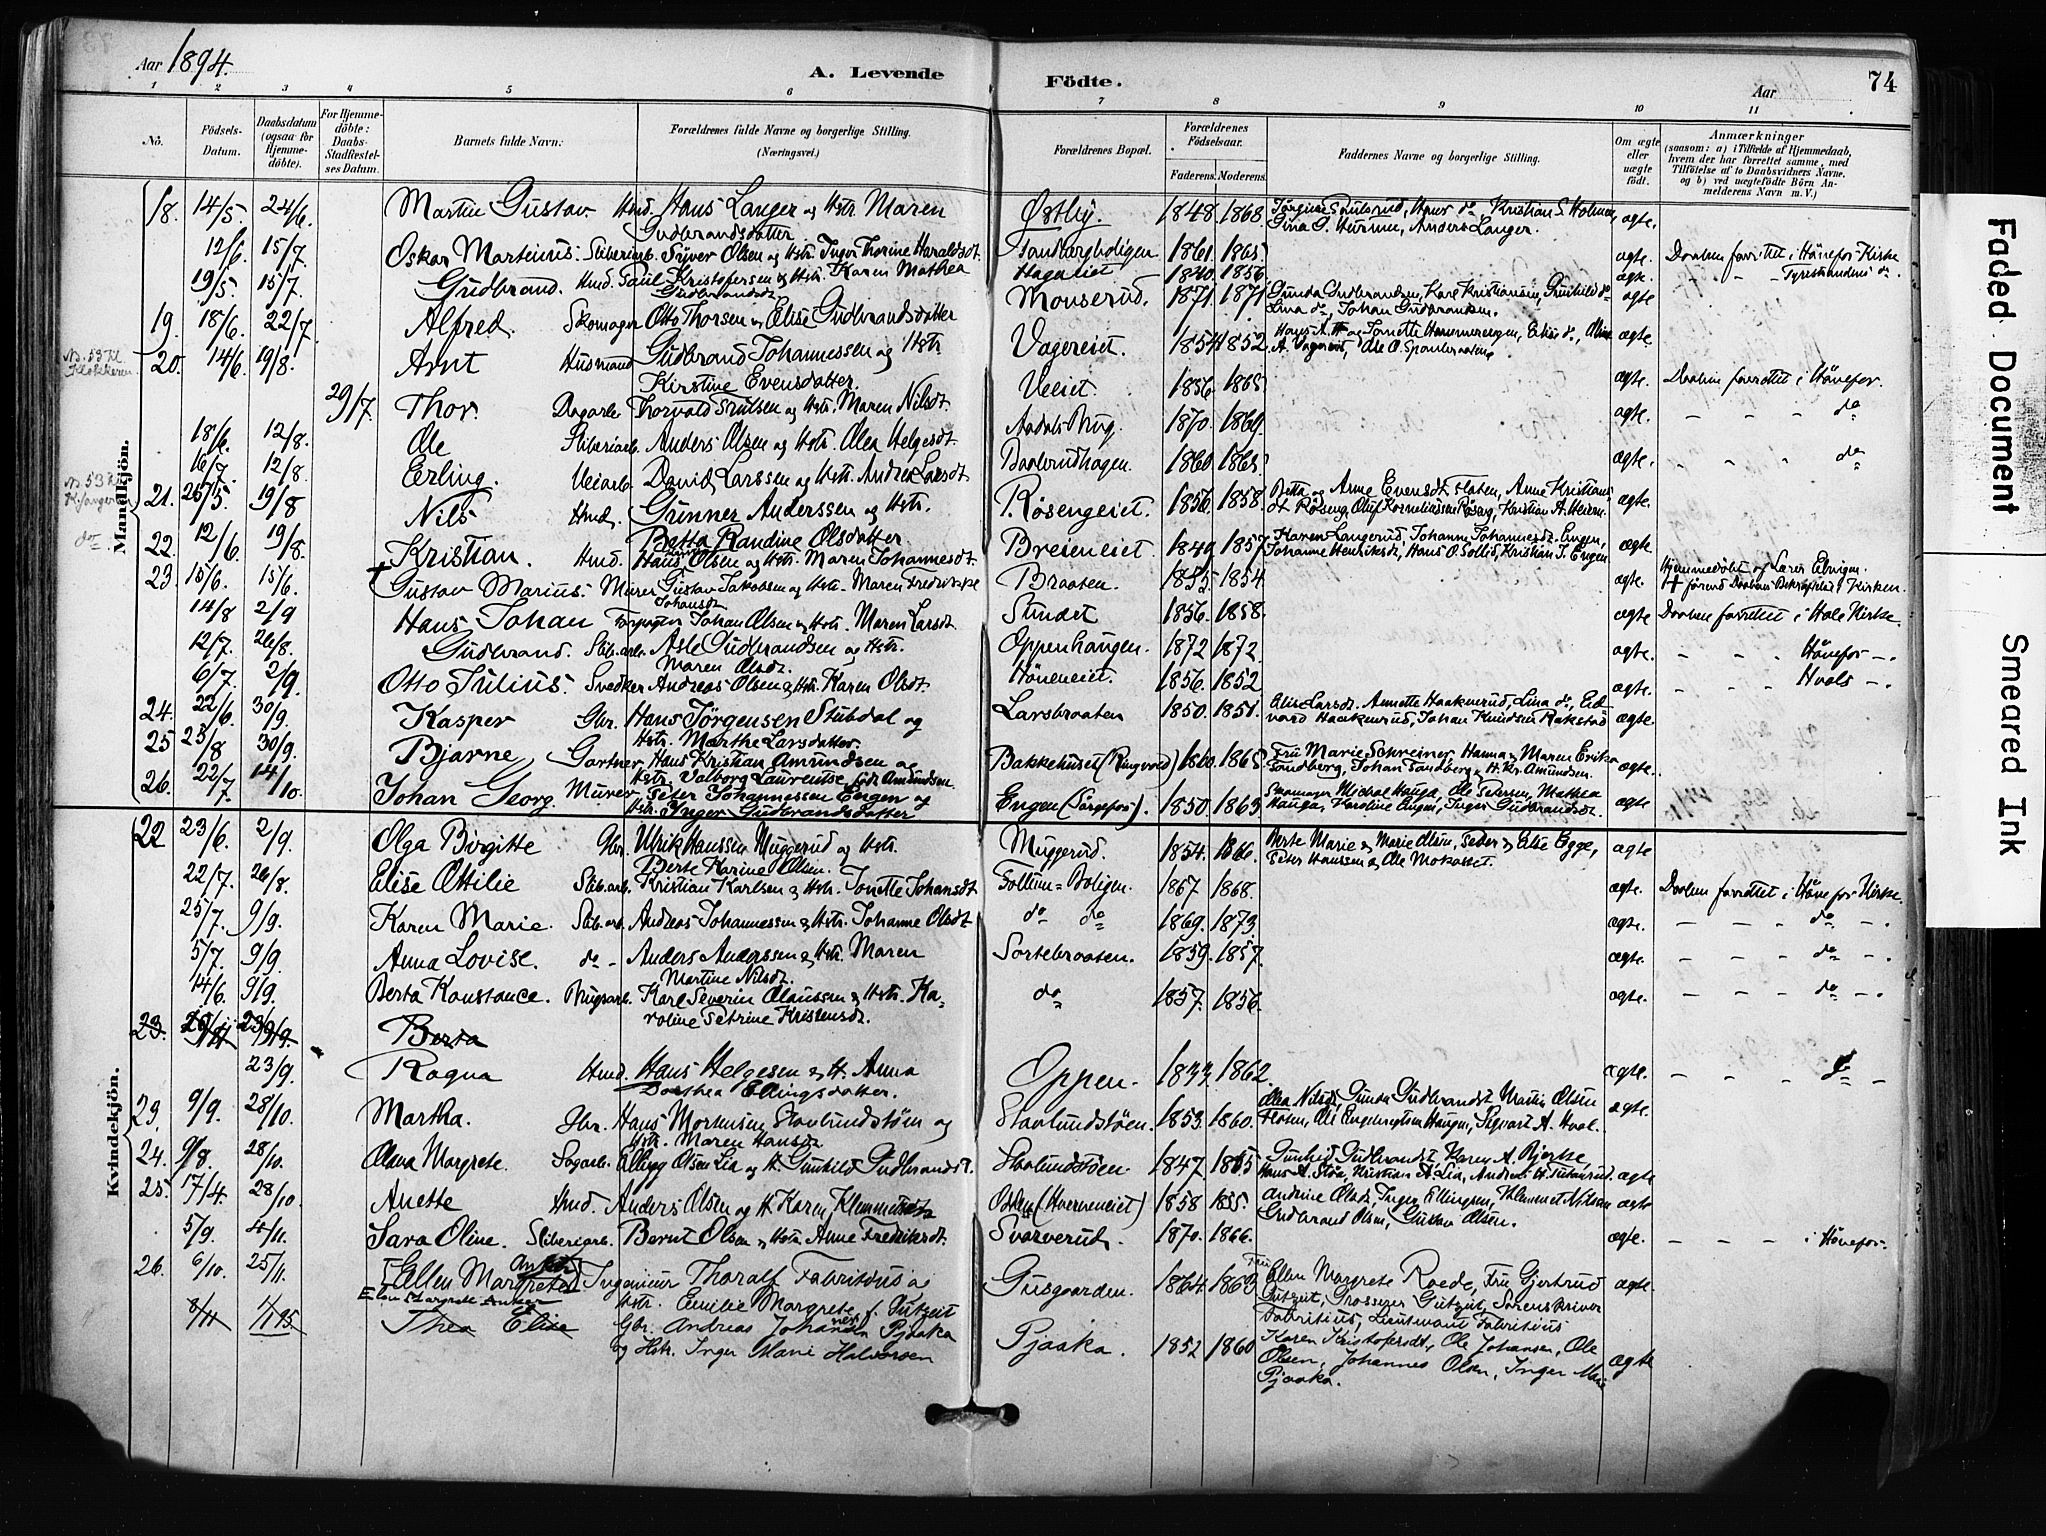 Aar 1894.
A. Levende
Födte.
Aar
74
1 2 3 4 5 6 7 8 9 10 11
No.
Födsels-Datum.
Daabsdatum (ogsaa for Hjemme-döbte).
For Hjemme-döbte: Daabs-Stadfæstel-ses Datum.
Barnets fulde Navn:
Forældrenes fulde Navne og borgerlige Stilling. (Næringsvei.)
Forældrenes Bopæl.
Forældrenes Födselsaar.
Faderens. Moderens.
Faddernes Navne og borgerlige Stilling.
Om ægte eller uægte födt.
Anmærkninger (saasom: a) i Tilfælde af Hjemmedaab, hvem der har forrettet samme, med Tilföielse af to Daabsvidners Navne, og b) ved uægtefödte Börn An-melderens Navn m. V.)
Mandkjön.
18. 14/5. 24/6. Martin Gustav. Hmd. Hans Langer og Hstr. Maren Gudbrandsdatter Østby. 1848. 1868. Gina O. Anders Langer. ægte.
12/6. 15/7. Oskar Martinius. Sliberiarb. Syver Olsen og Hstr. Inger Thorine Haraldsdt. 1861. 1865. ægte. Daaben forrettet i Hönefos Kirke
19/5. 15/7. Gudbrand. Hmd. Paul Kristofersen og Hstr. Karen Mathea Gudbrandsdt. Hagaeiet 1840. 1856. ægte. - - Tyristrandens do.
19. 18/6. 22/7. Alfred. Skomager Otto Thorsen og Elise Gudbrandsdatter Monserud. 1871. 1871. Gunda Gudbrandsen, Kari Kristiansen, Gunhild do Lina do, Johan Gudbrandsen. ægte
20. 14/6. 19/8. Arnt Husmand Gudbrand Johannessen og Hstr. Kirstine Evensdatter. Vagereiet. 1854. 1852. ægte.
29/7. Thor. Dagarb. Thorvald og Hstr. Maren Nilsdt. Veeiet. 1856. 1865. ægte. Daaben forrettet i Hönefos.
18/6. 12/8. Ole Sliberiarb. Anders Olsen og Hstr. Olea Helgesdt. Aadals Brug. 1870. 1869. ægte. - - - do
16/7. 12/8. Erling. Veiarb. David Larssen og Hstr. Andrea Larsdt. 1860. 1865. ægte. - - - do
21. 25/5. 19/8 Nils Hmd. Gunner Anderssen og Hstr. Betta Randine Olsdatter. Røsengeiet. 1856. 1858. Betta og Anne Evensdt. Floten, Anne Kristians dt Røseng, Oluf Korneliussen Røseng, Kristian A. ægte.
22. 12/6. 19/8. Kristian. Hmd. Hans Olsen og Hstr. Maren Johannesdt. Breieneiet. 1849. 1857. Karen Langerud, Johanne Johannesdt. Engen, Johanne Henriksdt, Hans O. Sollid, Kristian J. Engen ægte
23. 15/6. 15/6. † Gustav Marius. Murer Gustav Jakobsen og Hstr. Maren Fredrikke Johansdt. Braaten. 1855. 1854. ægte. Hjemmedöbt af Laris † förend Daabens Bekræftelse i Kirken.
14/8 2/9 Hans Johan Johan Olsen og Hstr. Maren Larsdt. Stindet 1856. 1858. ægte Daaben forrettet i Hole Kirke.
12/7. 26/8. Gudbrand. Slib.arb. Asle Gudbrandsen og Hstr. Maren Olsdt. Oppenhaugen. 1872. 1872. ægte. - - - Hönefos -.
6/7. 2/9. Otto Julius. Svedker Andreas Olsen og Hstr. Karen Olsdt. Höneneiet. 1856. 1852. ægte. - - - Hvals -.
24. 22/6. 30/9. Kasper Gbr. Hans Jörgensen Stubdal og Hstr. Marthe Larsdatter. Larsbraaten 1850. 1851. Elise Larsdt. Annette Haakenrud, Lina do, Ed vard Haakenrud, Johan Knudsen Rakstad ægte.
25 23/8 30/9. Bjarne Gartner Hans Kristian Amundsen og Hstr. Valborg Laurentse, född Amundsen. Bakkehuset (Ringvold) 1860. 1865. Fru Marie Schreiner, Hanna og Maren Erika Sandberg, Johan Sandberg, H. Kr. Amundsen. ægte.
26. 22/7. 14/10. Johan Georg. Murer Peter Johannessen Engen og Hstr. Inger Gudbrandsdatter Engen 1850. 1863. Skomager Michal Hauga, Ole Petersen, Mathea Hauga, Karoline Engen, Inger Gudbrandsdt. ægte
Kvindekjön.
22 23/6. 2/9. Olga Birgitte Gbr. Ulrik Hanssen Muggerud og Hstr. Berte Karine Olsen. Muggerud. 1854. 1866. Berte Marie og Marie Olsen, Peder og Elise Egge, Peter Hanssen og Ole Mokastet. ægte
22/7. 26/8. Elise Ottilie Slib.arb. Kristian Karlsen og Hstr. Jonette Johansdt. Follum = Boligen. 1867. 1868. ægte. Daaben forrettet i Hönefos Kirke.
25/7. 9/9. Karen Marie. Slib.arb. Andreas Johannessen og Hstr. Johanne Olsdt do do 1869. 1873. ægte. - - - do - .
5/7. 9/9. Anna Lovise. do - Anders Anderssen og Hstr. Maren Martine Nilsdt. Sortebraaten. 1859. 1857. ægte. - - - do - .
14/6. 9/9. Berta Konstance. Brugsarb. Karl Severin Olaussen og Hstr. Ka-roline Petrine Kristensdt. do 1857. 1856. ægte. - - - do - .
23. Berta
23/9. Ragna Hmd. Hans Helgesen og H. Anna Dorthea Ellingsdatter. Oppen. 1833. 1862. ægte. - - - do -
23. 9/9. 28/10. Martha. Gbr. Hans Mortensen Stavlundstøen og Hstr. Maren Hansdt. Stavlundstöen. 1853. 1860. Olea Nilsdt, Gunda Gudbrandsdt Martin Olsen Floten, Ole Engebregtsen Haugen, Sigvart A. Hval. ægte.
24. 9/8. 28/10. Olava Margrete. Sagarb. Olsen Lia og H. Gunhild Gudbrandsdt. 1847. 1855 Gunhild Gudbrandsdt, Karen A. Bjerke, Kristian A. Lia, ægte
25. 17/4. 28/10. Anette Hmd. Anders Olsen og H. Karen Klemmetsdt. (Hverveneiet) 1858 1855. Andrine Olsdt, Inger Ellingsen, Klemmet Nilssen Gudbrand Olsen, Gustav Olsen. ægte
5/9. 4/11. Sara Oline. Sliberiarb. Bernt Olsen og Hstr. Anne Fredriksdt. Svarverud. 1870. 1866. ægte. - - - i Hönefos.
26. 6/10. 25/11. Ellen Margrete Anker Ingenieur Tharalf Fabritius og Hstr. Emilie Margrete f. Gutzeit Gusgaarden. 1864. 1863 Fru Ellen Margrete Roede, Fru Gjertrud Gutzeit, Grosserer Gutzeit, Sorenskriver Fabritius, Lieutenant Fabritius ægte.
8/11 1/1 95. Thea Elise Gbr. Andreas Johannesen Pjaaka og Hstr. Inger Marie Halvorsen Pjaaka. 1852 1860 Karen Kristofersdt., Ole Johansen, Ole Olsen, Johannes Olsen, Inger Marie Pjaaka. ægte
Faded Document
Smeared Ink